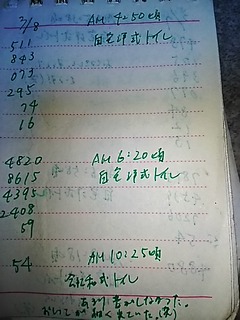 7/8 AM 4:50頃
511 自宅洋式トイレ
843
073
295
74
16
4820 AM 6:20頃
8615 自宅洋式トイレ
4395
2408
59
AM 10:25頃
54
会社和式トイレ
あまり書かしなかった。
においが細く出ていた。